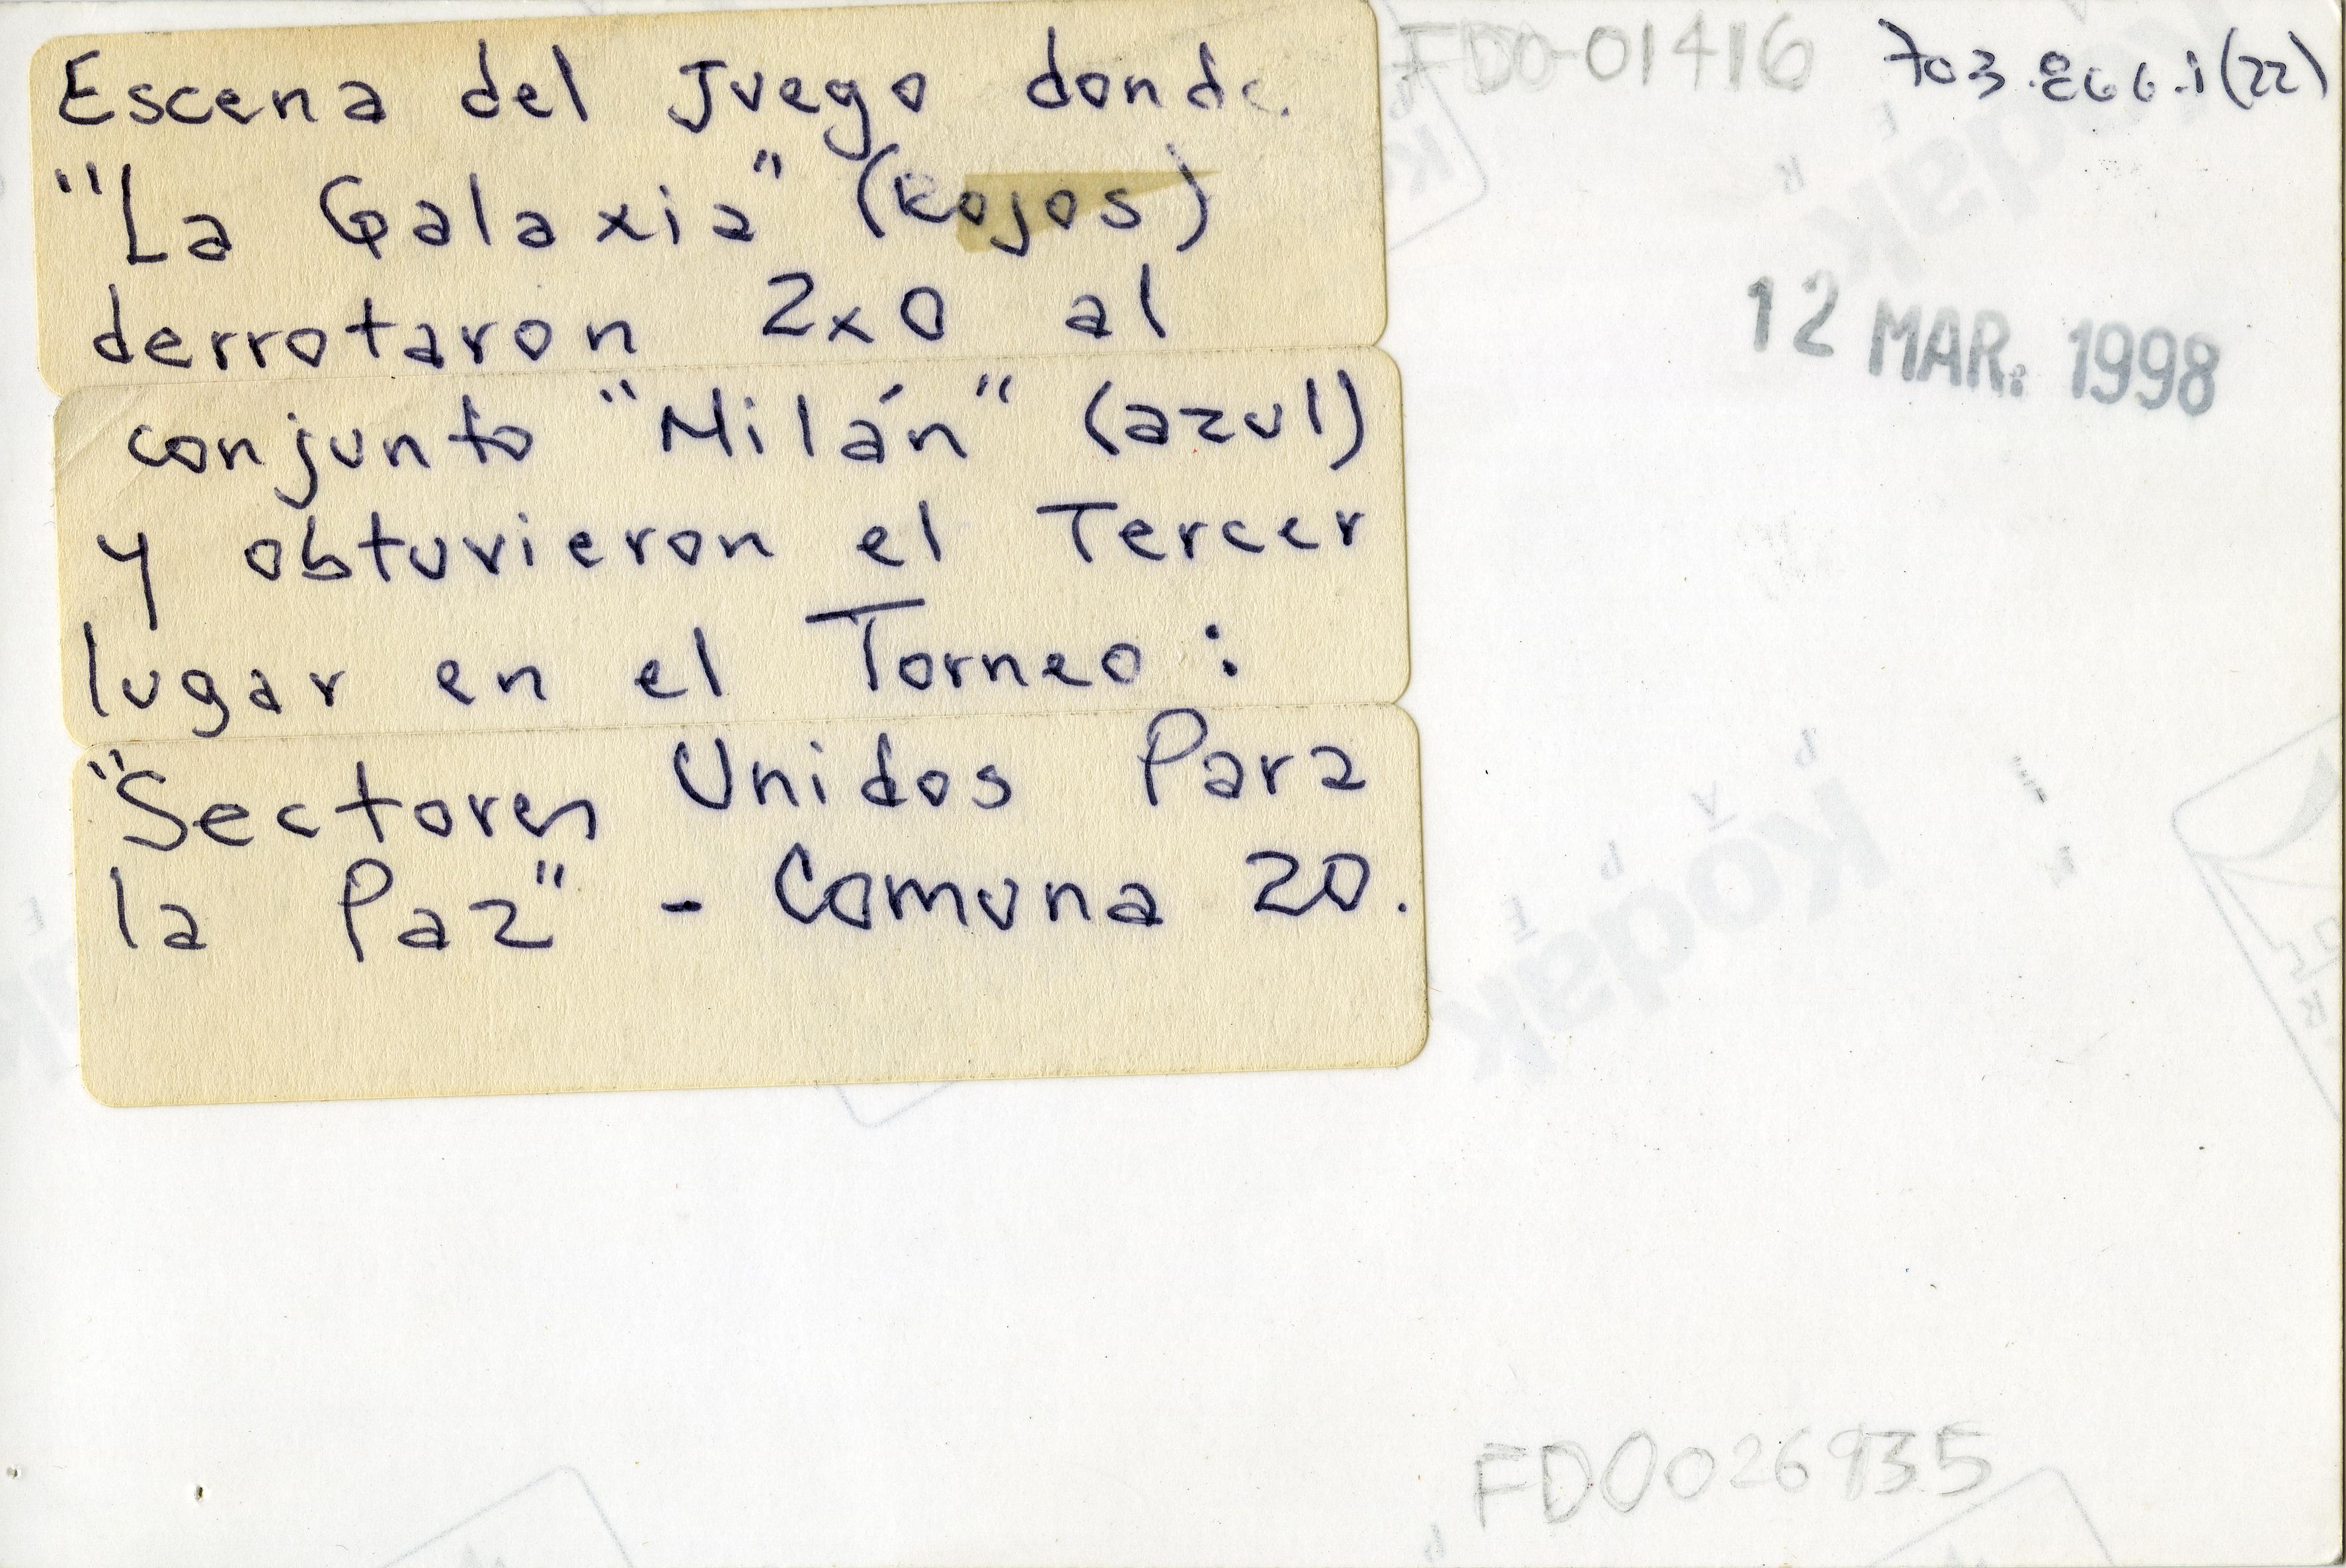 Escena del Juego donde
"La Galaxia" (Rojos)
derrotaron 2x0 al
conjunto "Milán" (azul)
y obtuvieron el Tercer
lugar en el Torneo:
"Sectores Unidos Para
la Paz" - Comuna 20.
FDO-01416
703.866.1(22)
12 MAR. 1998
Kodak
FD0026935